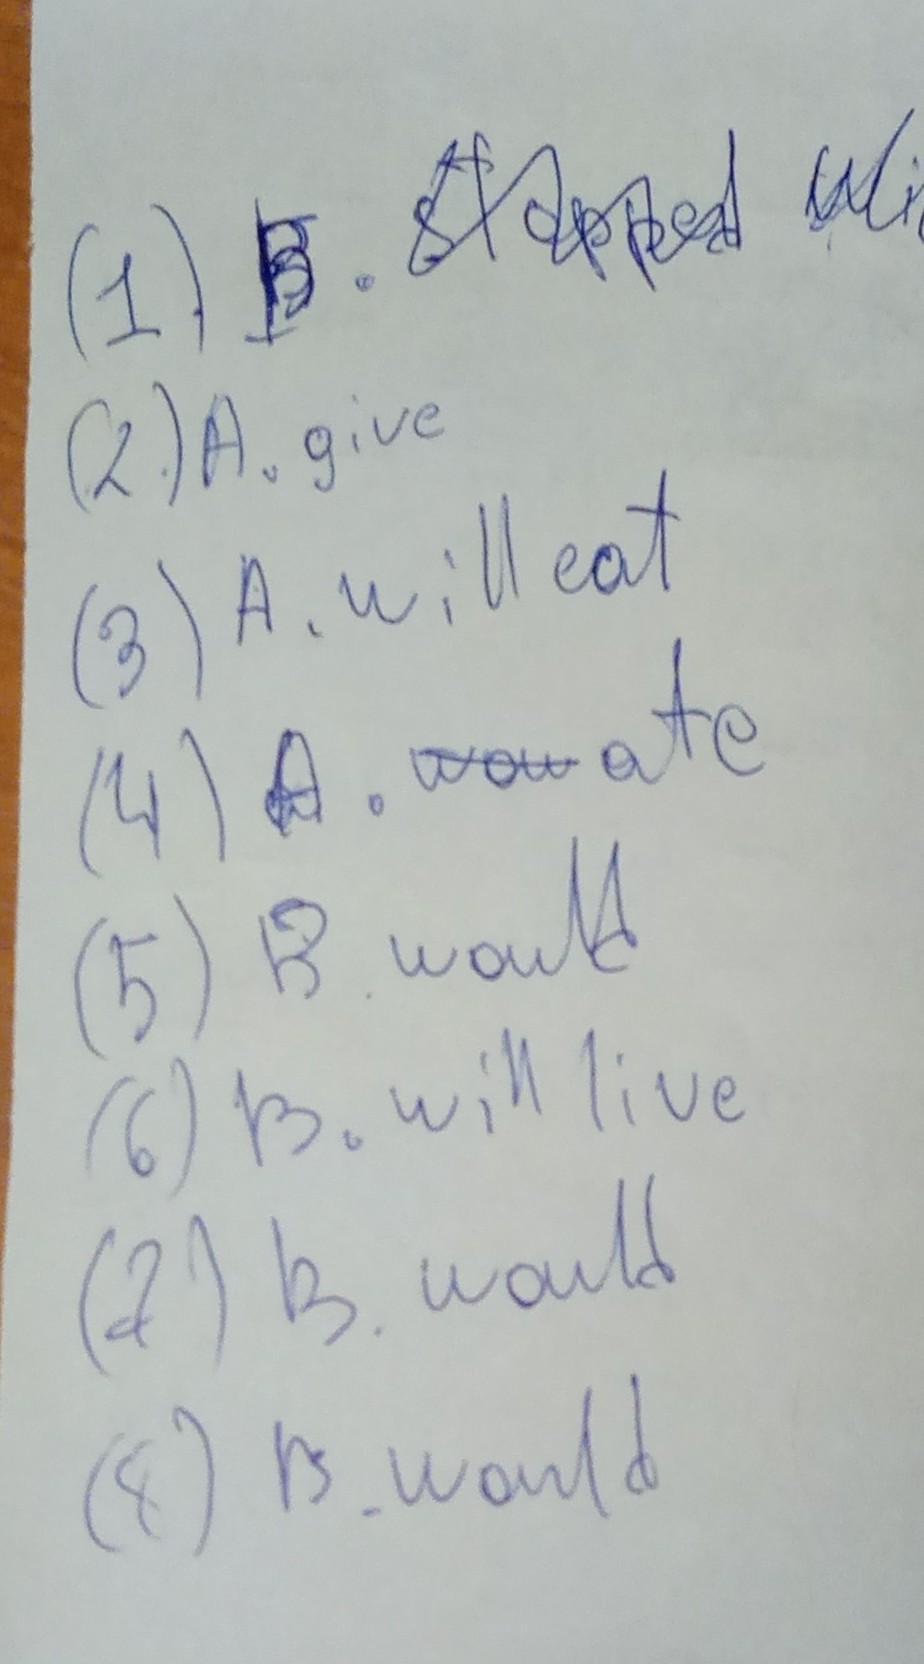 (1) B. stopped
(2.) A. give
(3) A. will eat
(4) A. wou ate
(5) B. would
(6) B. will live
(7) B. would
(8) B. would